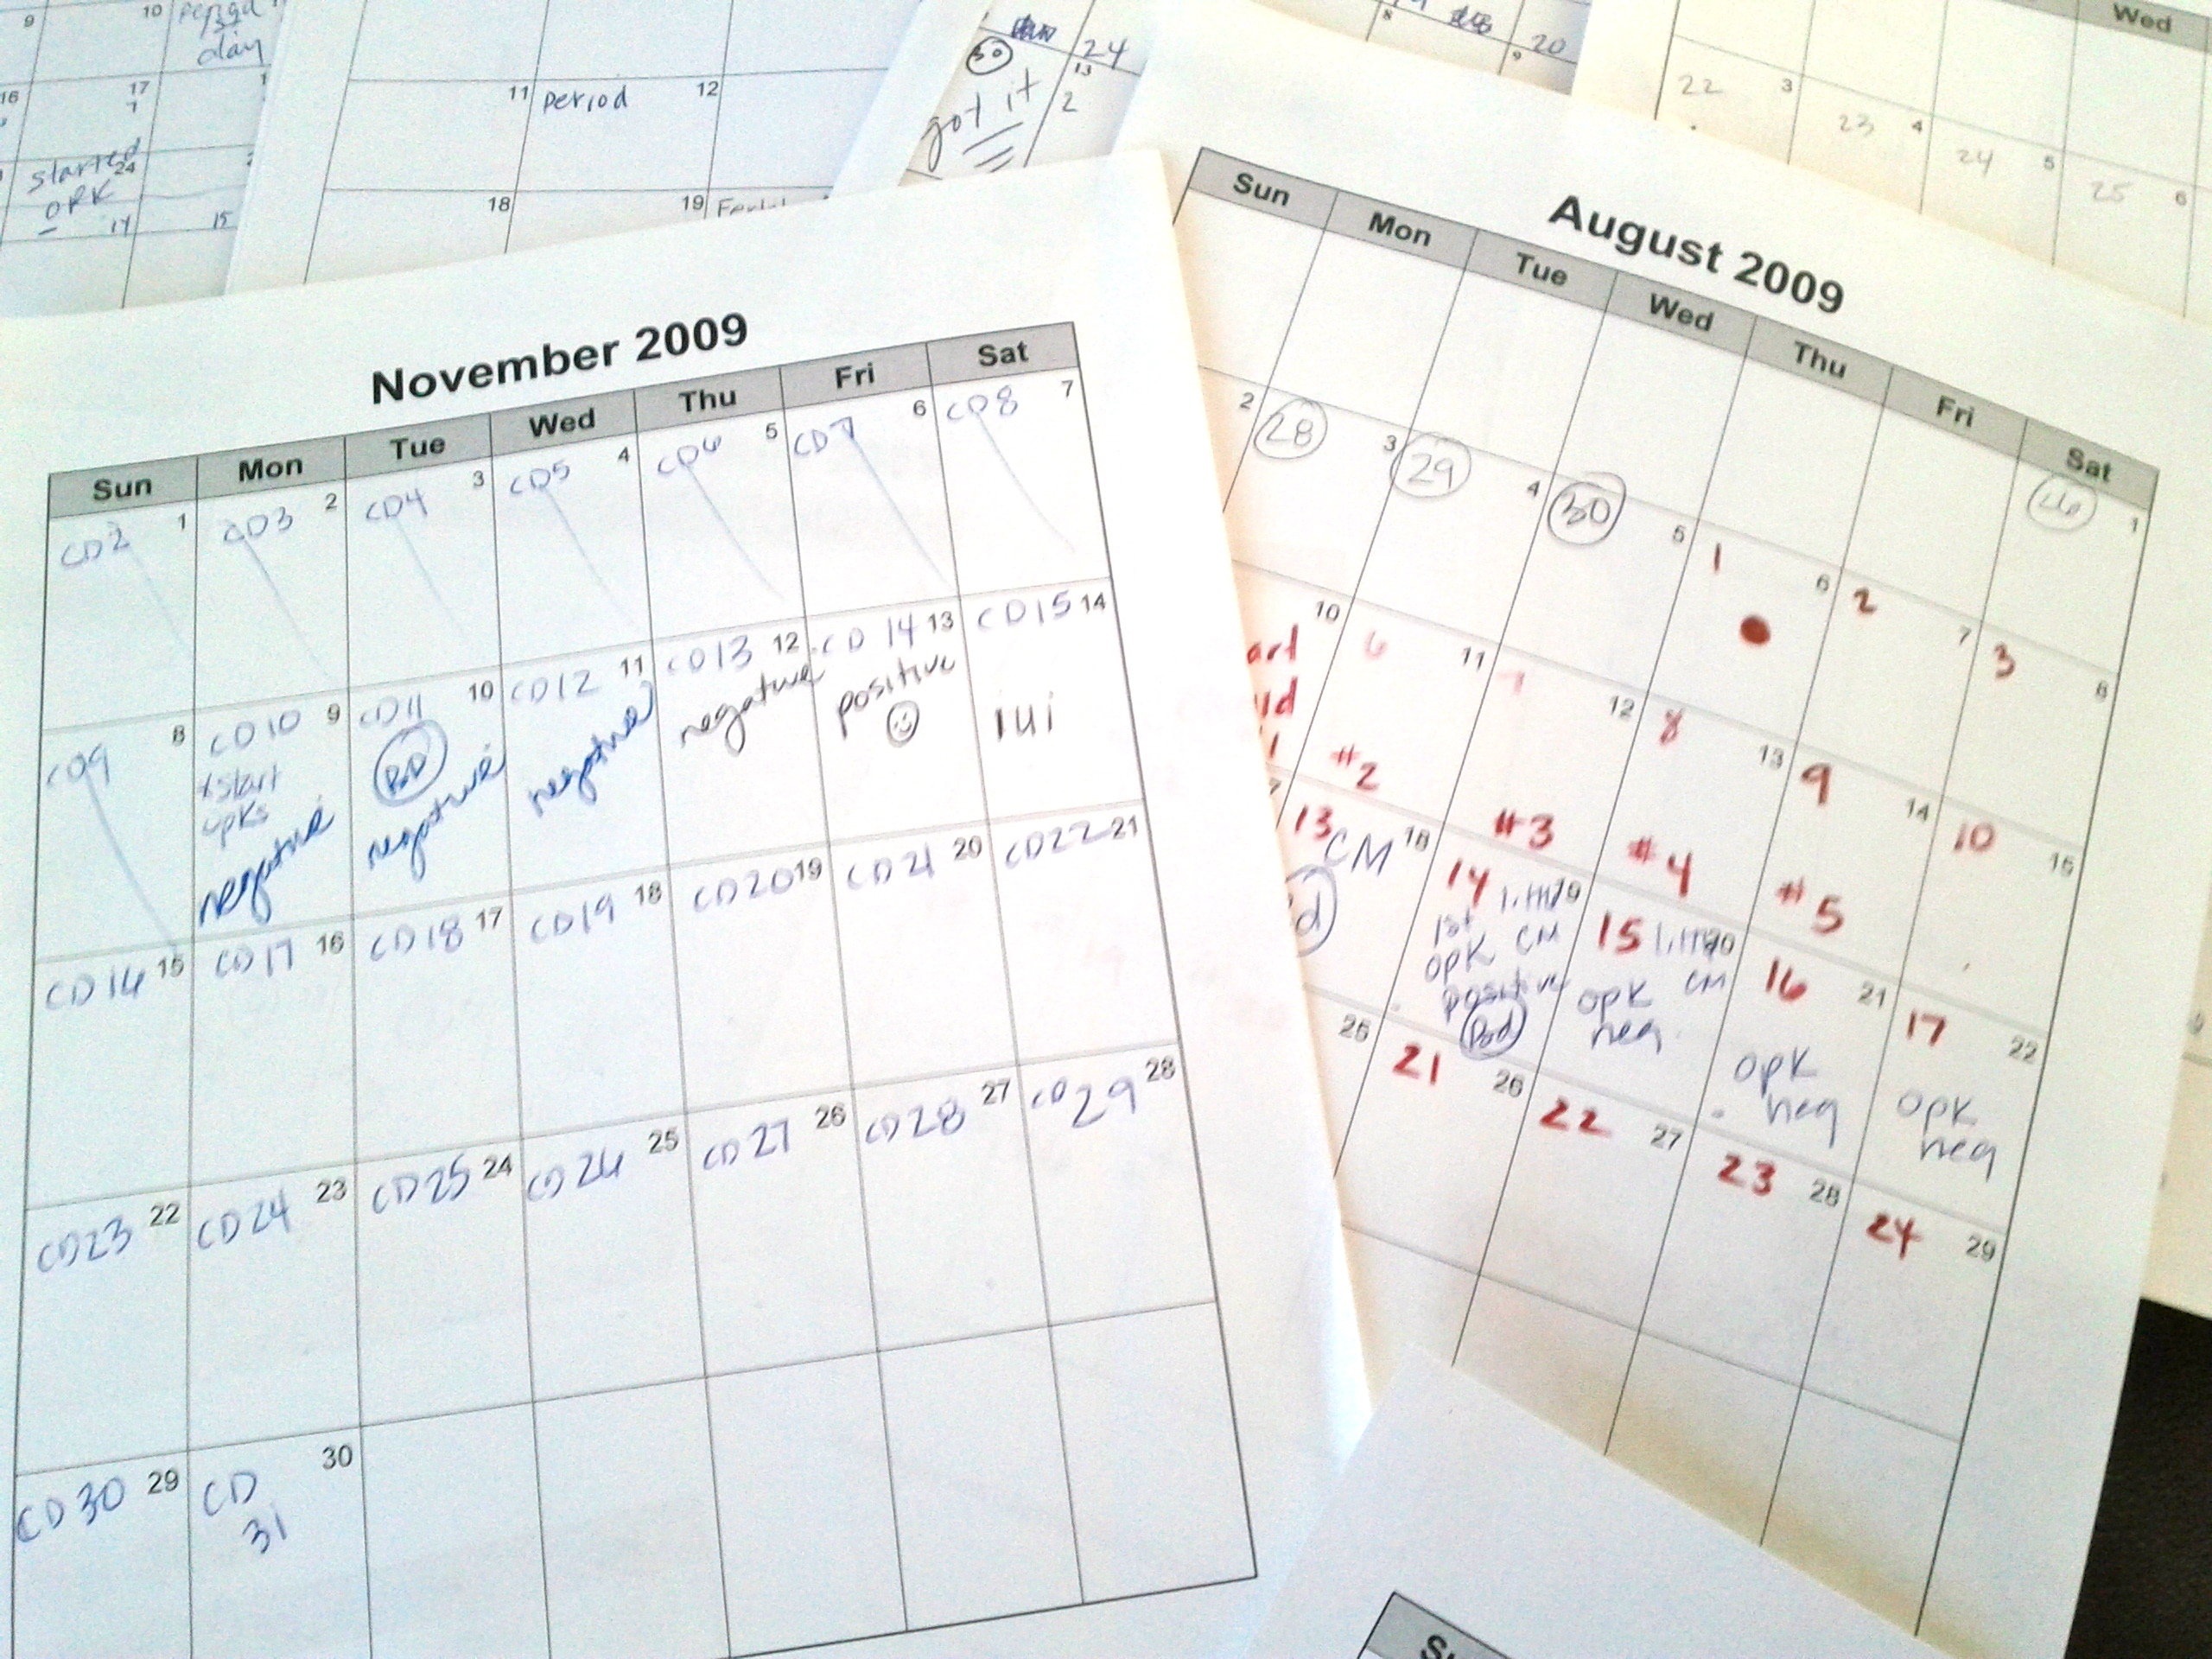 9
10
period
day
16
17
24
started
OPK
14
15
11
period
12
18
19
30
24
got it
13
2
8
9
20
Wed
22
3
23
4
24
5
25
6
November 2009
Sun Mon Tue Wed Thu Fri Sat
CD2 1 CD3 2 CD4 3 CD5 4 CD6 5 CD7 6 CD8 7
CD9 8
CD10 9
start
opks
negative
CD11 10
BD
negative
CD12 11
negative
CD13 12
negative
CD14 13
positive
CD15 14
iui
CD16 15 CD17 16 CD18 17 CD19 18 CD20 19 CD21 20 CD22 21
CD23 22 CD24 23 CD25 24 CD26 25 CD27 26 CD28 27 CD29 28
CD30 29
CD 30
31
August 2009
Sun Mon Tue Wed Thu Fri Sat
26 1
2 28 3 29 4 30 5 1 6 2 7 3 8
10 6 11 7 12 8 13 9 14 10 15
#2 #3 #4 #5
13 CM 18
14 little 19
1st
OPK CM
positive
Bd
15 little 20
CM
OPK
neg
16 21
OPK
neg
17 22
OPK
neg
25 21 26 22 27 23 28 24 29